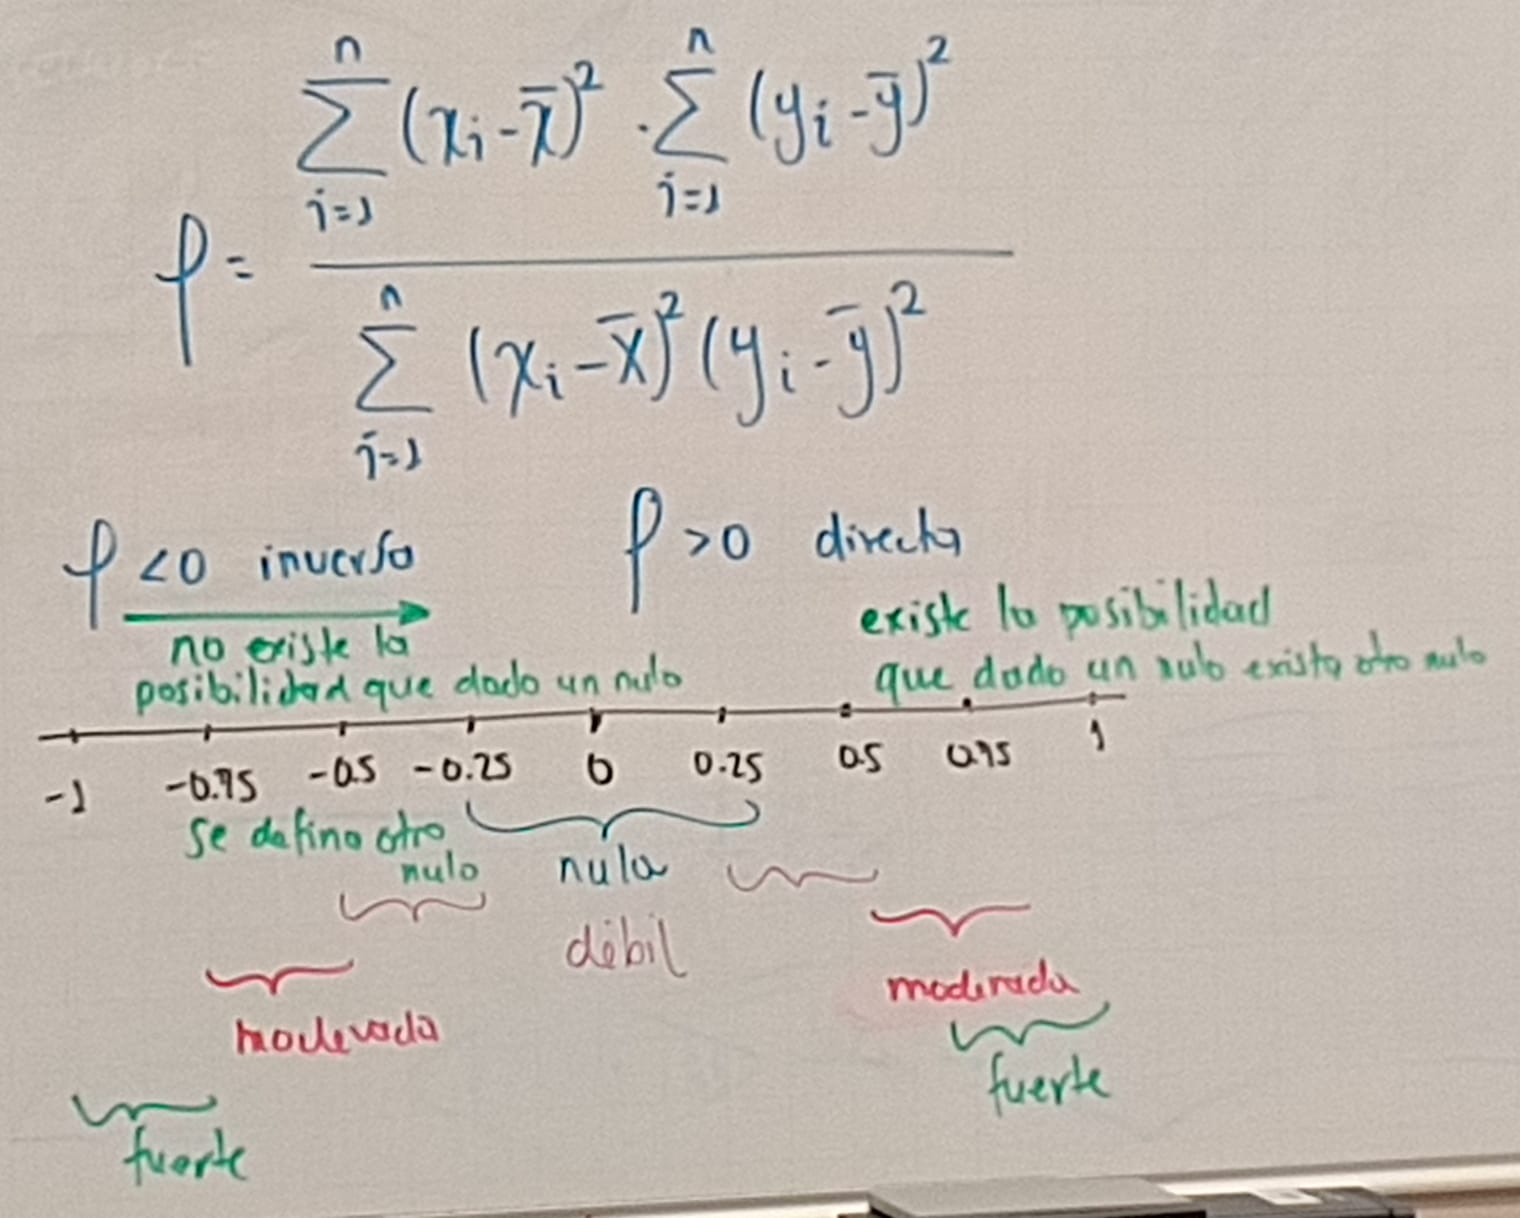 ρ = \frac{\sum_{i=1}^{n} (x_i - \bar{x})^2 \cdot \sum_{i=1}^{n} (y_i - \bar{y})^2}{\sum_{i=1}^{n} (x_i - \bar{x})^2 (y_i - \bar{y})^2}
ρ <0 inverso
ρ >0 directa
no existe la
posibilidad que dado un nulo
existe la posibilidad
que dado un nulo exista otro nulo
-1 -0.75 -0.5 -0.25 0 0.25 0.5 0.75 1
se defina otro
nulo
nula
débil
moderada
moderada
fuerte
fuerte